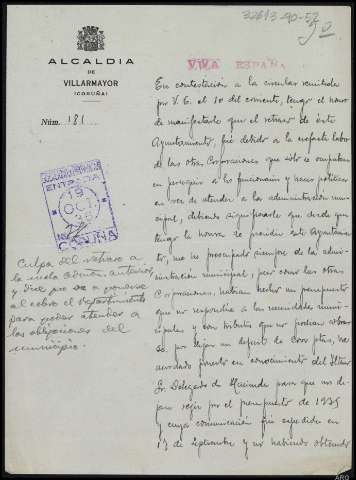 32613-90-52
ALCALDIA
DE
VILLARMAYOR
(CORUÑA)
Núm. 181
VIVA ESPAÑA
En contestación a la circular remitida
por V. E. el 10 del corriente, tengo el honor
de manifestarle que el retraso de este
Ayuntamiento, fué debido a la nefasta labor
de las otras Corporaciones que solo se ocupaban
en perseguir a los funcionarios y hacer política
en vez de atender a la administración mu-
nicipal, debiendo significarle que desde que
tengo la honra de presidir este Ayuntamien-
to, me he preocupado siempre de la admi-
nistración municipal, pero como las otras
Corporaciones, habían hecho un presupuesto
que no respondía a las necesidades muni-
cipales y con tributos que no podían cobrar-
se, por dejar un deficit de ptas, he
acordado ponerlo en conocimiento del Iltmo
Sr. Delegado de Hacienda para que nos de-
jase regir por el presupuesto de 1935
y cuya comunicación fué expedida en
17 de Septiembre y no habiendo obtenido
ENTRADA
19
OCT.
36
CORUÑA
Culpa del retraso a
la mala admon. anterior,
y dice que va a ponerse
al cobro el repartimiento
para poder atender a
las obligaciones del
municipio.